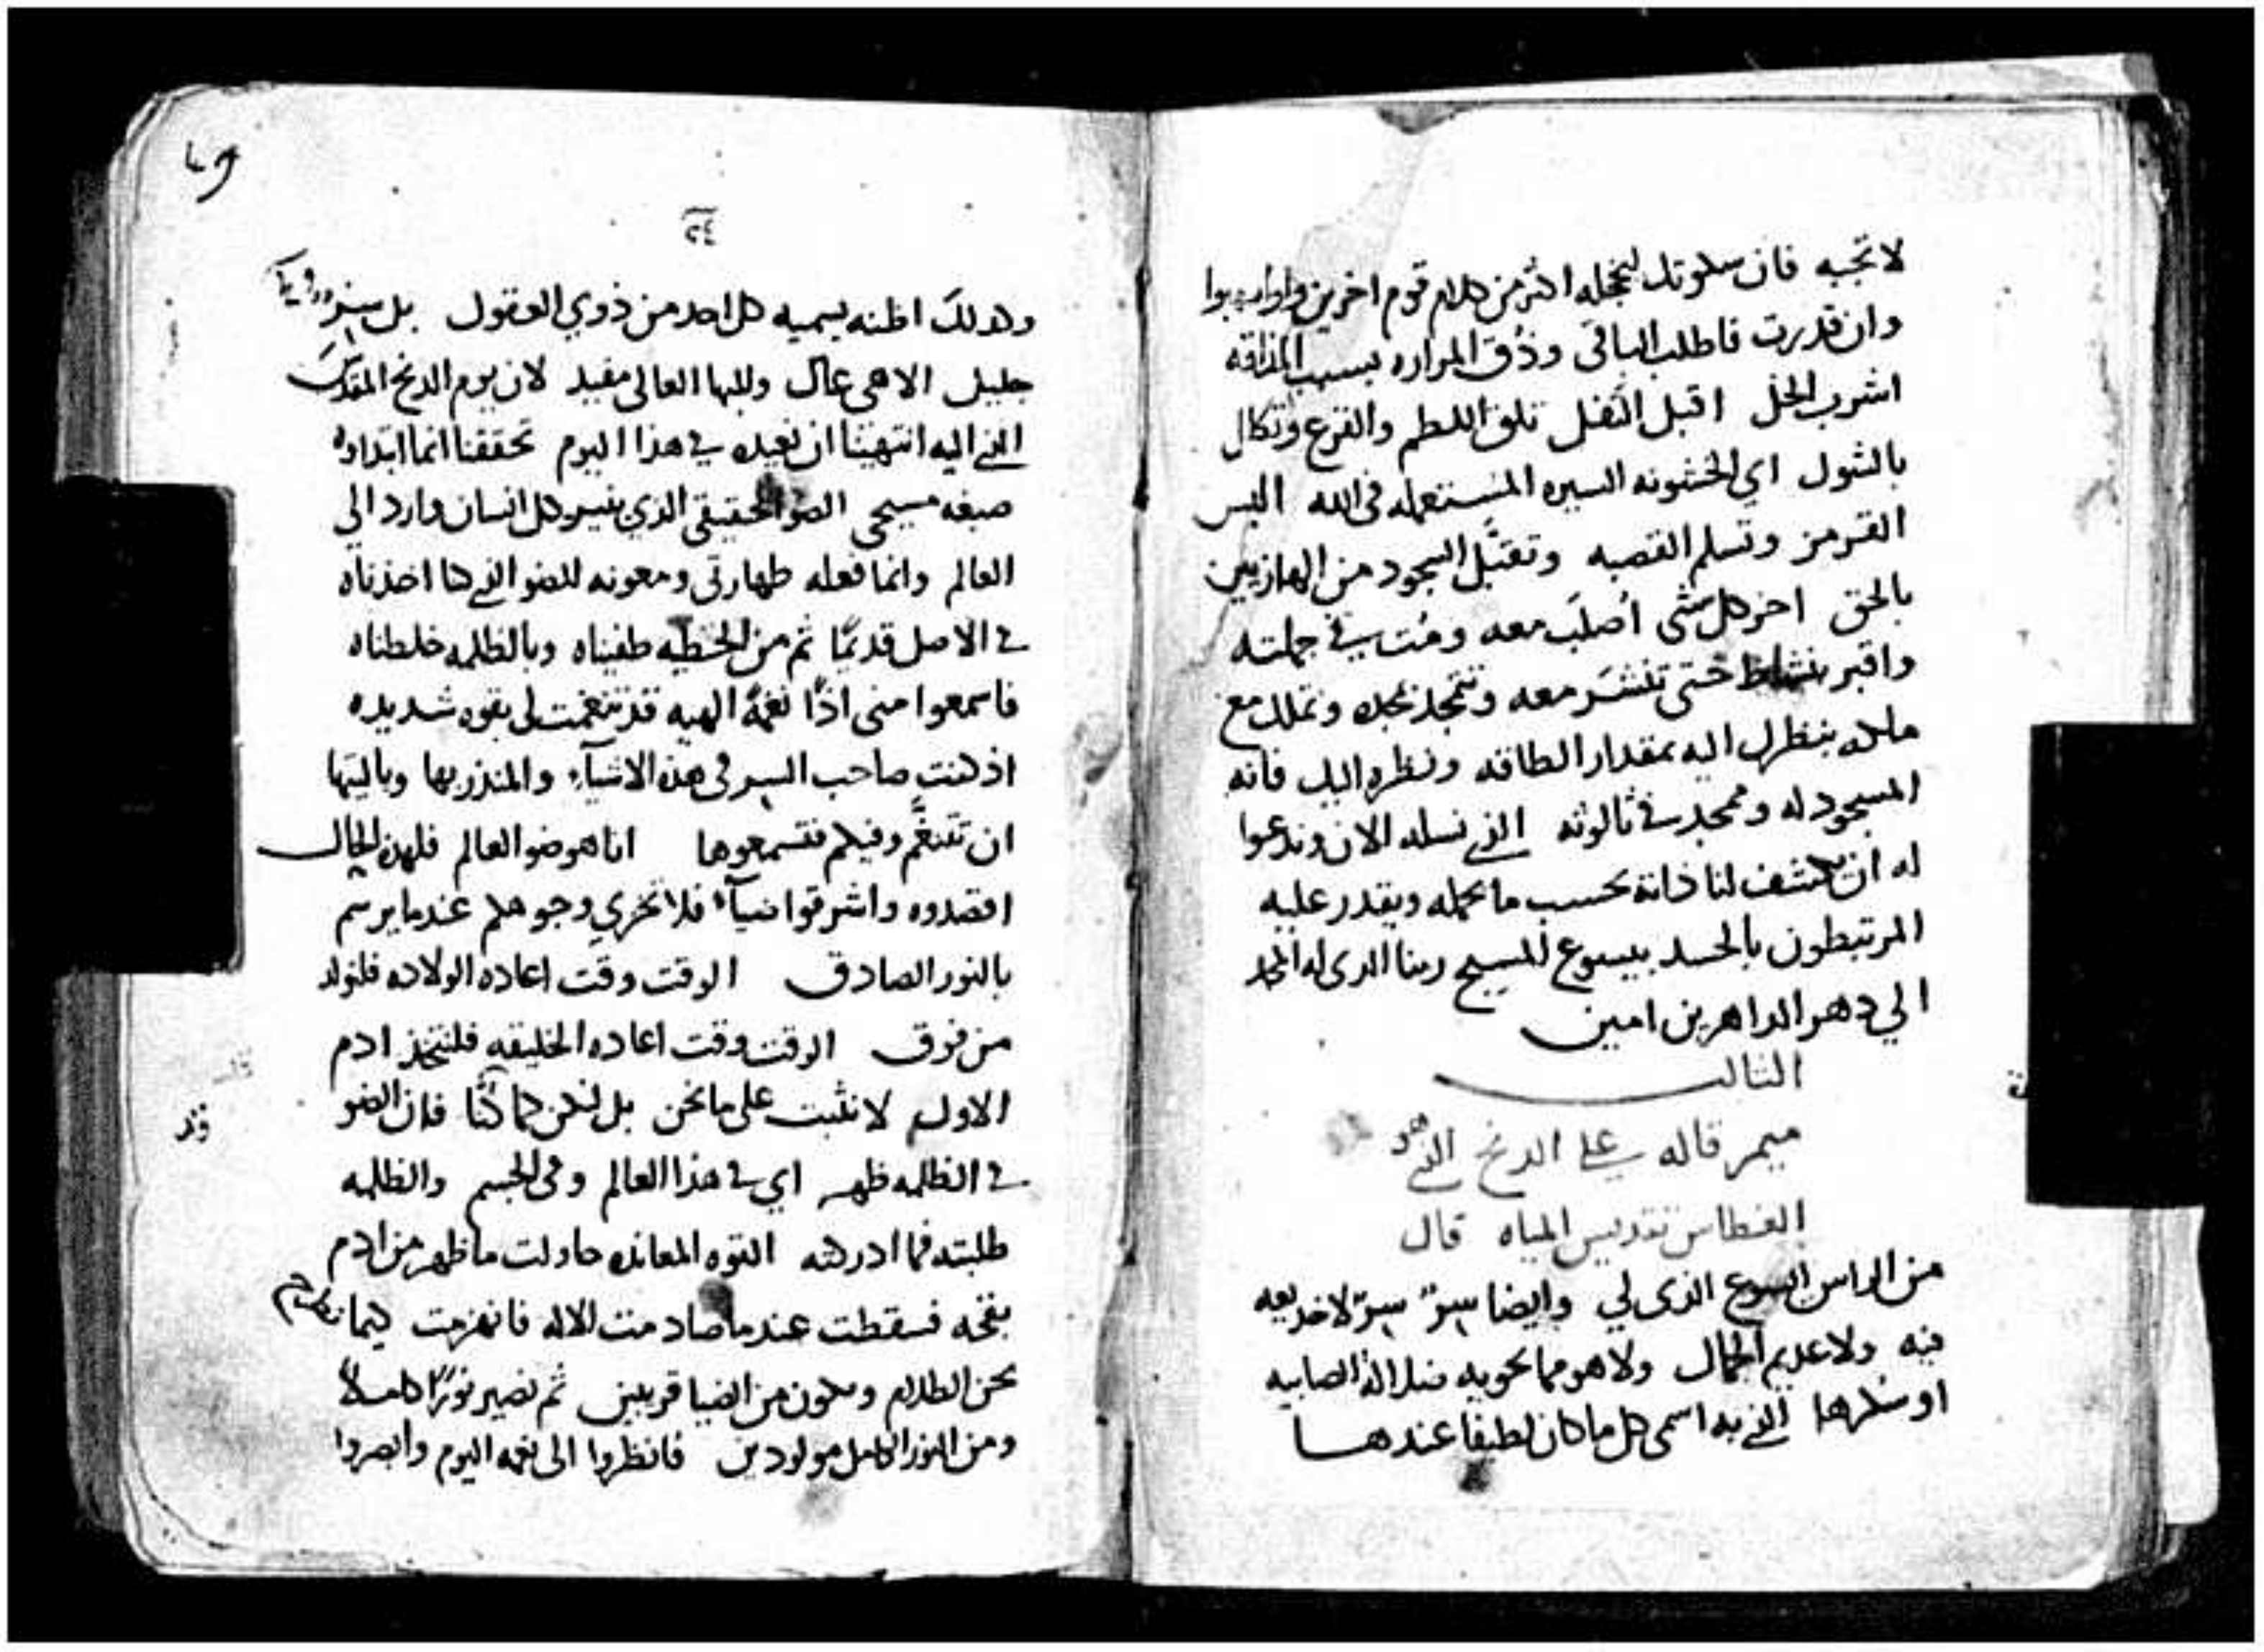 لا تجبه فان سكوتك ليخجله اكثر من كلام قوم اخرين
وان قدرت فاطلب الباقي وذُق المراره بسبب المذاقه
اشرب الخل اقبل التفل تلق اللطم والقرع وتكلل
بالشوك اي الخشونه السيره المستعمله في الله البس
القرمز وتسلم القصبه وتقبَّل السجود من الهازيين
بالحق اخر كل شي اُصلَب معه ومُت في جملته
واقبر بنشاط حتى تنشر معه وتتمجد بمجده وتملك مع
ملكه بنظرك اليه بمقدار الطاقه ونظره اليك فانه
المسجود له وممجد في ثالوثه الذي نسله الان وندعوا
له ان يكشف لنا ذاته بحسب ما يحمله ويقدر عليه
المرتبطون بالجسد بيسوع المسيح ربنا الذى له المجد
الي دهر الداهرين امين
الثالث
ميمر قاله على الدنح الذي هو
الغطاس تقديس المياه قال
من الراس ايسوع الذى لي وايضا سرّ سرّ لا خديعه
فيه ولا عديم الجمال ولا هو مما يحويه ضلالة الصابيه
او سكرها الذي به اسمى كل ما كان لطيفا عندها
٢٤
وكذلك اظنه يسميه كل احد من ذوي العقول بل سر
جليل الاهي عال وللبها العالى مفيد لان يوم الدنح المقدس
الذي اليه انتهينا ان نعيده في هذا اليوم تحققنا انما ابتداوه
صبغه مسيحي الضو الحقيقي الذي ينير كل انسان وارد الي
العالم وانما فعله طهارتي ومعونه للضو الذي كنا اخذناه
في الاصل قديمًا ثم من الخطيه طفيناه وبالظلمه خلطناه
فاسمعوا منى اذًا نغمةً الهيه قد تنغمت لى بقوه شديده
اذ كنت صاحب السر في هذه الاشيآء والمنذر بها وياليتها
ان تتنغَّم وفيكم فتسمعوها انا هو ضو العالم فلهذه الحال
اقصدوه واشرقوا ضيآء فلا تخزي وجوهكم عندما يرسم
بالنور الصادق الوقت وقت اعاده الولاده فلنولد
من فوق الوقت وقت اعاده الخليقه فلنتخذ ادم
الاول لا نثبت على ما نحن بل لنكن كما كنّا فان الضو
في الظلمه ظهر اي في هذا العالم وفى الجسم والظلمه
طلبته فما ادركته القوه المعانده حاولت ما ظهر من ادم
بقحه فسقطت عندما صادمت الاله فانهزمت كيما نطرح
نحن الظلام ونكون من الضيا قريبين ثم نصير نورًا كاملاً
ومن النور الكامل مولودين فانظروا الى نعمه اليوم وابصروا